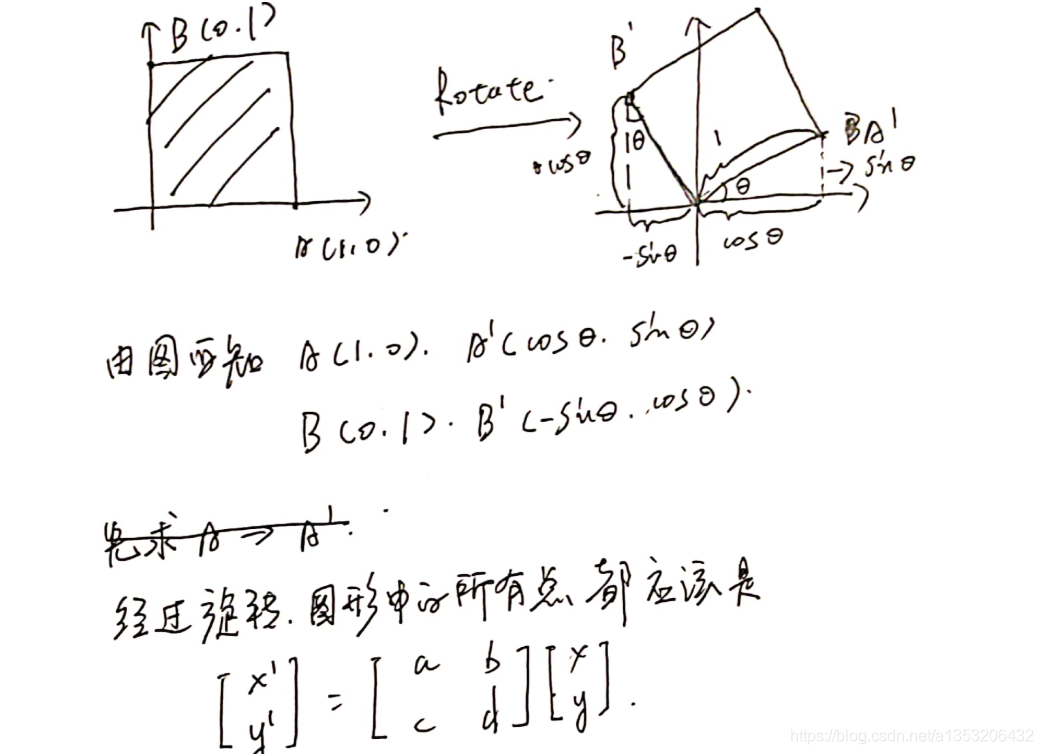 B(0.1)
A(1.0).
Rotate.
B'
θ
cosθ
-sinθ
1
θ
cosθ
A'
→ sinθ
由图可知 A(1.0). A'(cosθ. sinθ)
B(0.1). B'(-sinθ. cosθ).
先求 A → A'.
经过旋转.图形中的所有点都应该是
[x' y'] = [a b c d][x y].
https://blog.csdn.net/a1353206432